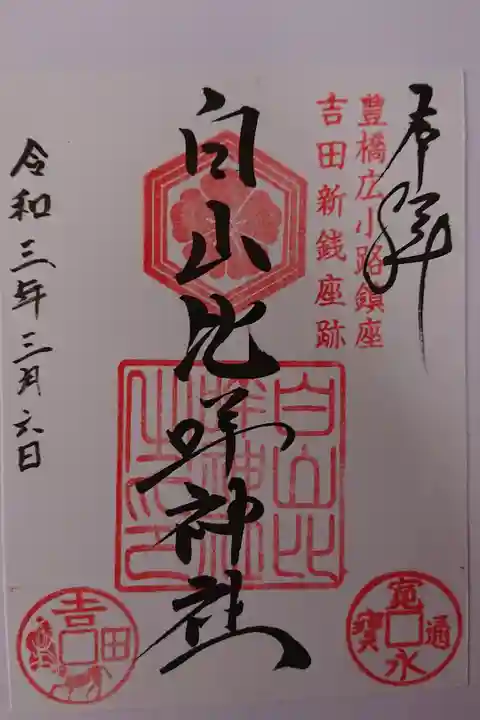 奉拝
豊橋広小路鎮座
吉田新銭座跡
白山比咩神社
白山比
咩神社
之印
令和三年三月六日
寛永通寳
吉田